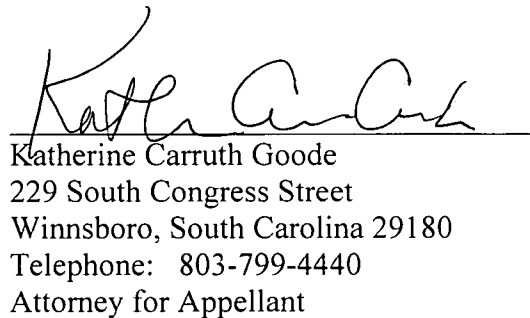 Katherine Carruth Goode
229 South Congress Street
Winnsboro, South Carolina 29180
Telephone: 803-799-4440
Attorney for Appellant